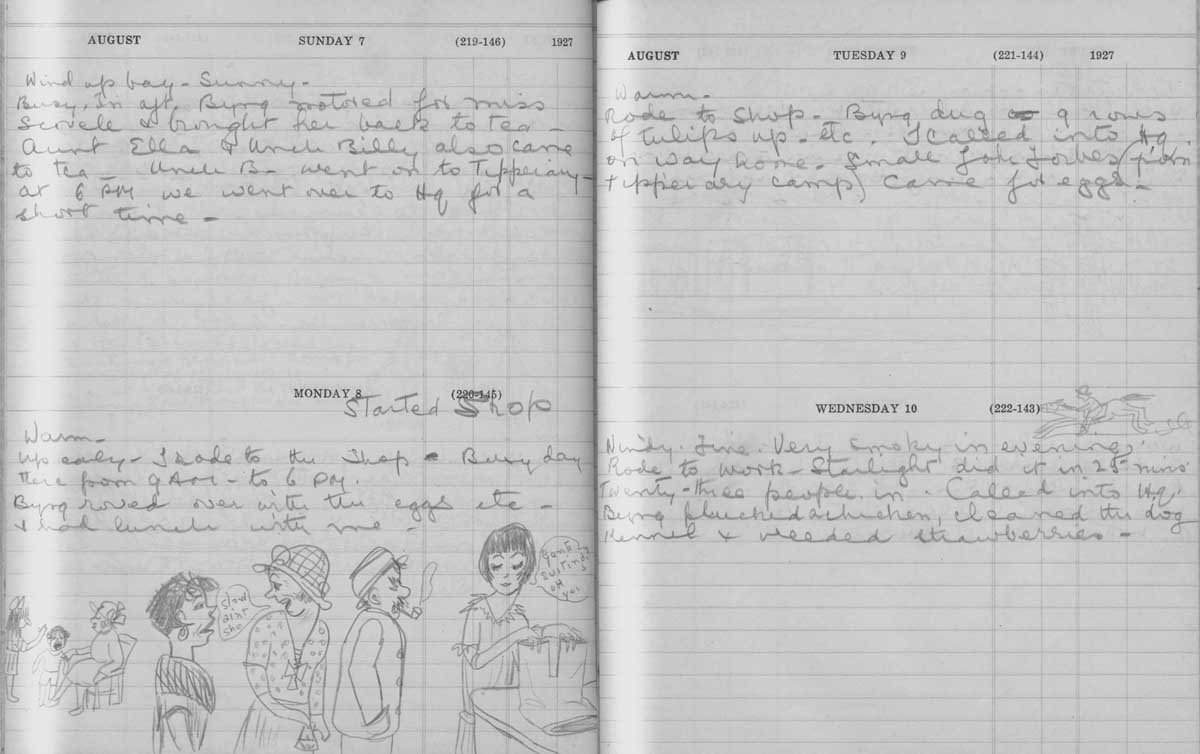 AUGUST SUNDAY 7 (219-146) 1927
Wind up bay - Sunny -
Busy. In aft. Byng motored for miss
& brought her back to tea -
Aunt Ella & Uncle Billy also came
to tea - Uncle B. went on to Tipperary -
at 6 PM we went over to Hq for a
short time -
MONDAY 8 (220-145)
Started Shop
Warm -
up early - I rode to the Shop - Busy day
there from 9 AM - to 6 PM.
Byng rowed over with the eggs etc -
& had lunch with me -
Slow
aint
she
suiting
of
you
AUGUST TUESDAY 9 (221-144) 1927
Warm -
Rode to Shop - Byng dug 9 rows
of tulips up - etc. I called into Hq.
on way home. Small Forbes (from
Tipperary camp) came for eggs -
WEDNESDAY 10 (222-143)
Windy. Fine. Very smoky in evenings.
Rode to work - Starlight did it in 25 mins
Twenty-three people in. Called into Hq.
Byng plucked a chicken, cleaned the dog
kennel & weeded strawberries -